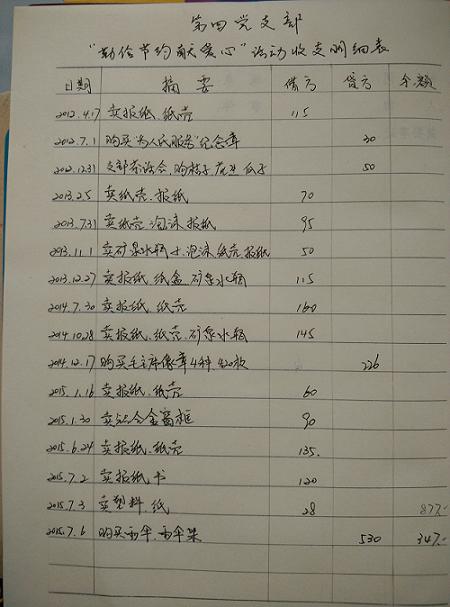 第四党支部
"勤俭节约 献爱心"活动收支明细表
日期 摘要 借方 贷方 余额
2012.4.17 卖报纸.纸壳 115
2012.7.1 购买"为人民服务"纪念章 30
2012.12.31 支部茶话会,购桔子 花生 瓜子 50
2013.2.5 卖纸壳.报纸 70
2013.7.31 卖纸壳.泡沫.报纸 95
2013.11.1 卖矿泉水瓶 泡沫 纸壳.报纸 50
2013.12.27 卖报纸.纸盒.矿泉水瓶 115
2014.7.30 卖报纸.纸壳 160
2014.10.28 卖报纸.纸壳.矿泉水瓶 145
2014.12.17 购买毛主席像章4种 420枚 226
2015.1.16 卖报纸.纸壳 60
2015.1.30 卖铝合金窗框 90
2015.6.24 卖报纸.纸壳 135.
2015.7.2 卖报纸 书 120
2015.7.3 卖塑料.纸 28 877.-
2015.7.6 购买雨伞.雨伞架 530 347.-